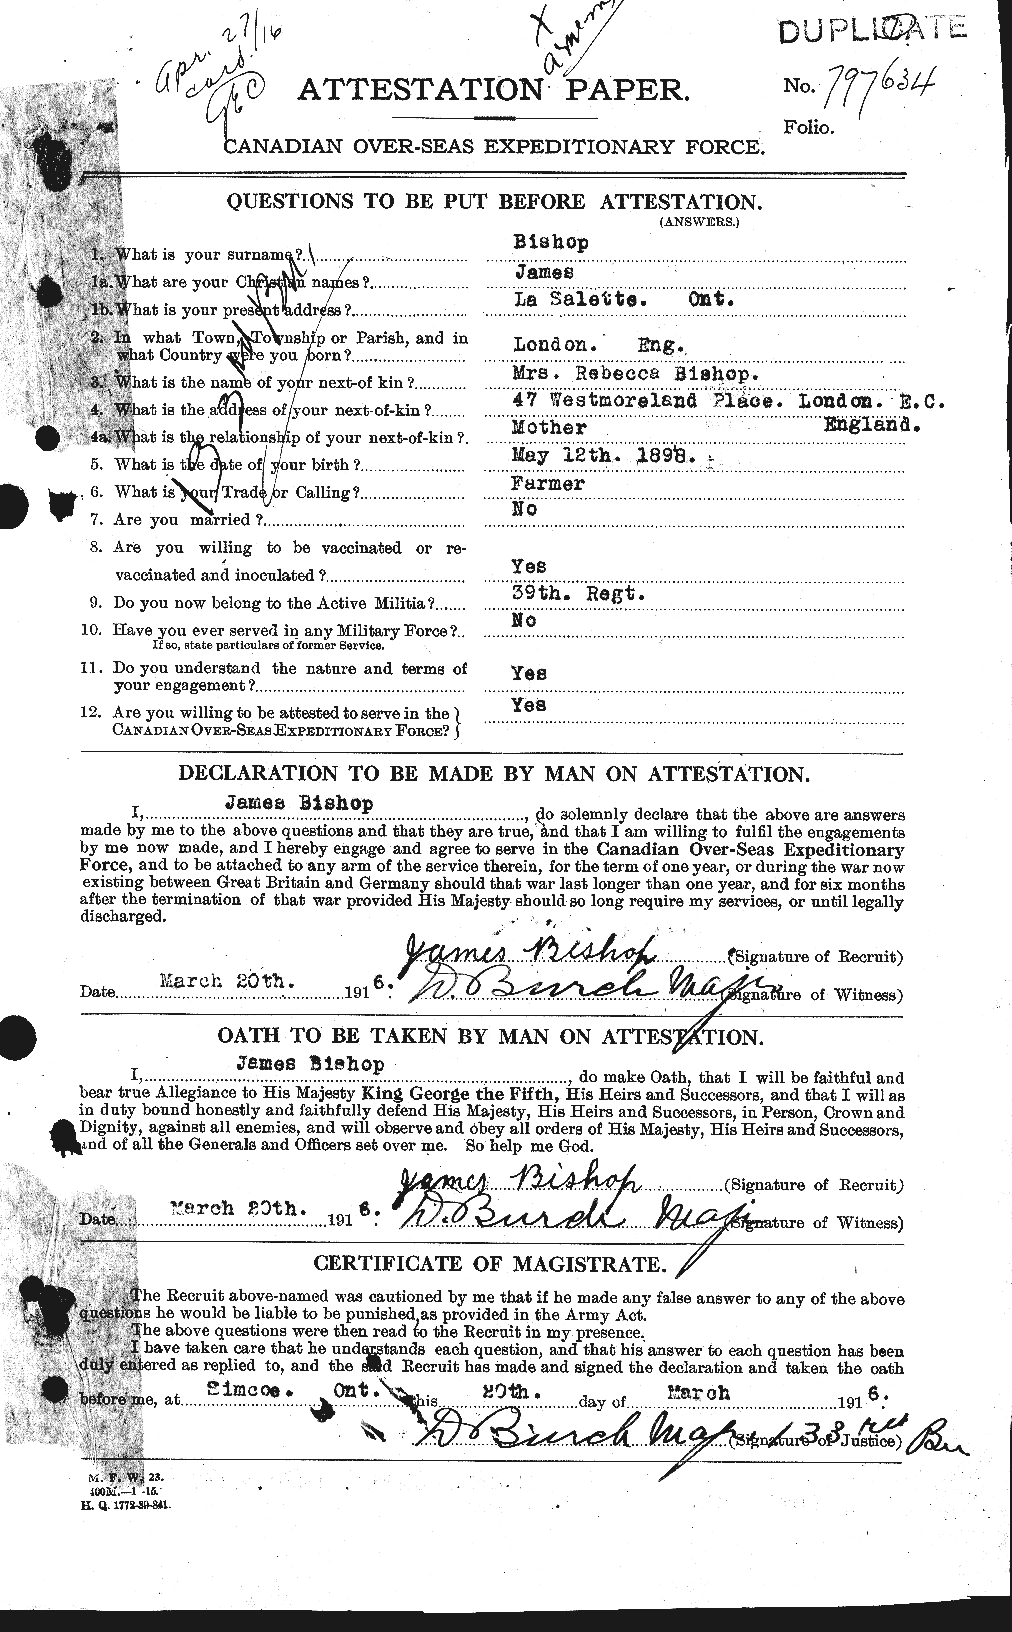 Apr. 27/16
card.
DUPLICATE
ATTESTATION PAPER.
No. 797634
Folio.
CANADIAN OVER-SEAS EXPEDITIONARY FORCE.
QUESTIONS TO BE PUT BEFORE ATTESTATION.
(ANSWERS.)
1. What is your surname? Bishop
1a. What are your Christian names? James
1b. What is your present address? La Salette. Ont.
2. In what Town, Township or Parish, and in
what Country were you born? London. Eng.
3. What is the name of your next-of kin? Mrs. Rebecca Bishop.
4. What is the address of your next-of-kin? 47 Westmoreland Place. London. E.C.
England.
4a. What is the relationship of your next-of-kin? Mother
5. What is the date of your birth? May 12th. 1898.
6. What is your Trade or Calling? Farmer
7. Are you married? No
8. Are you willing to be vaccinated or re-
vaccinated and inoculated? Yes
9. Do you now belong to the Active Militia? 39th. Regt.
10. Have you ever served in any Military Force? No
If so, state particulars of former Service.
11. Do you understand the nature and terms of
your engagement? Yes
12. Are you willing to be attested to serve in the
CANADIAN OVER-SEAS EXPEDITIONARY FORCE? Yes
DECLARATION TO BE MADE BY MAN ON ATTESTATION.
I, James Bishop, do solemnly declare that the above are answers
made by me to the above questions and that they are true, and that I am willing to fulfil the engagements
by me now made, and I hereby engage and agree to serve in the Canadian Over-Seas Expeditionary
Force, and to be attached to any arm of the service therein, for the term of one year, or during the war now
existing between Great Britain and Germany should that war last longer than one year, and for six months
after the termination of that war provided His Majesty should so long require my services, or until legally
discharged.
James Bishop (Signature of Recruit)
Date March 20th. 1916. D. Burch Major (Signature of Witness)
OATH TO BE TAKEN BY MAN ON ATTESTATION.
I, James Bishop, do make Oath, that I will be faithful and
bear true Allegiance to His Majesty King George the Fifth, His Heirs and Successors, and that I will as
in duty bound honestly and faithfully defend His Majesty, His Heirs and Successors, in Person, Crown and
Dignity, against all enemies, and will observe and obey all orders of His Majesty, His Heirs and Successors,
and of all the Generals and Officers set over me. So help me God.
James Bishop (Signature of Recruit)
Date March 20th. 1916. D. Burch Major (Signature of Witness)
CERTIFICATE OF MAGISTRATE.
The Recruit above-named was cautioned by me that if he made any false answer to any of the above
questions he would be liable to be punished as provided in the Army Act.
The above questions were then read to the Recruit in my presence.
I have taken care that he understands each question, and that his answer to each question has been
duly entered as replied to, and the said Recruit has made and signed the declaration and taken the oath
before me, at Simcoe. Ont. this 20th. day of March 1916.
D Burch Major 133 rd Bn (Signature of Justice)
M. F. W. 23.
400M.—1-15.
H. Q. 1772-39-841.